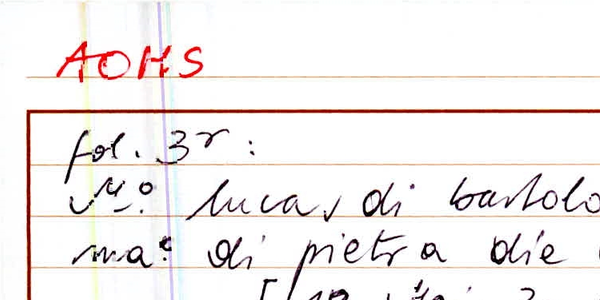 AOHS
fol. 3r :
Mº. lucas di bartolo
maº di pietra die